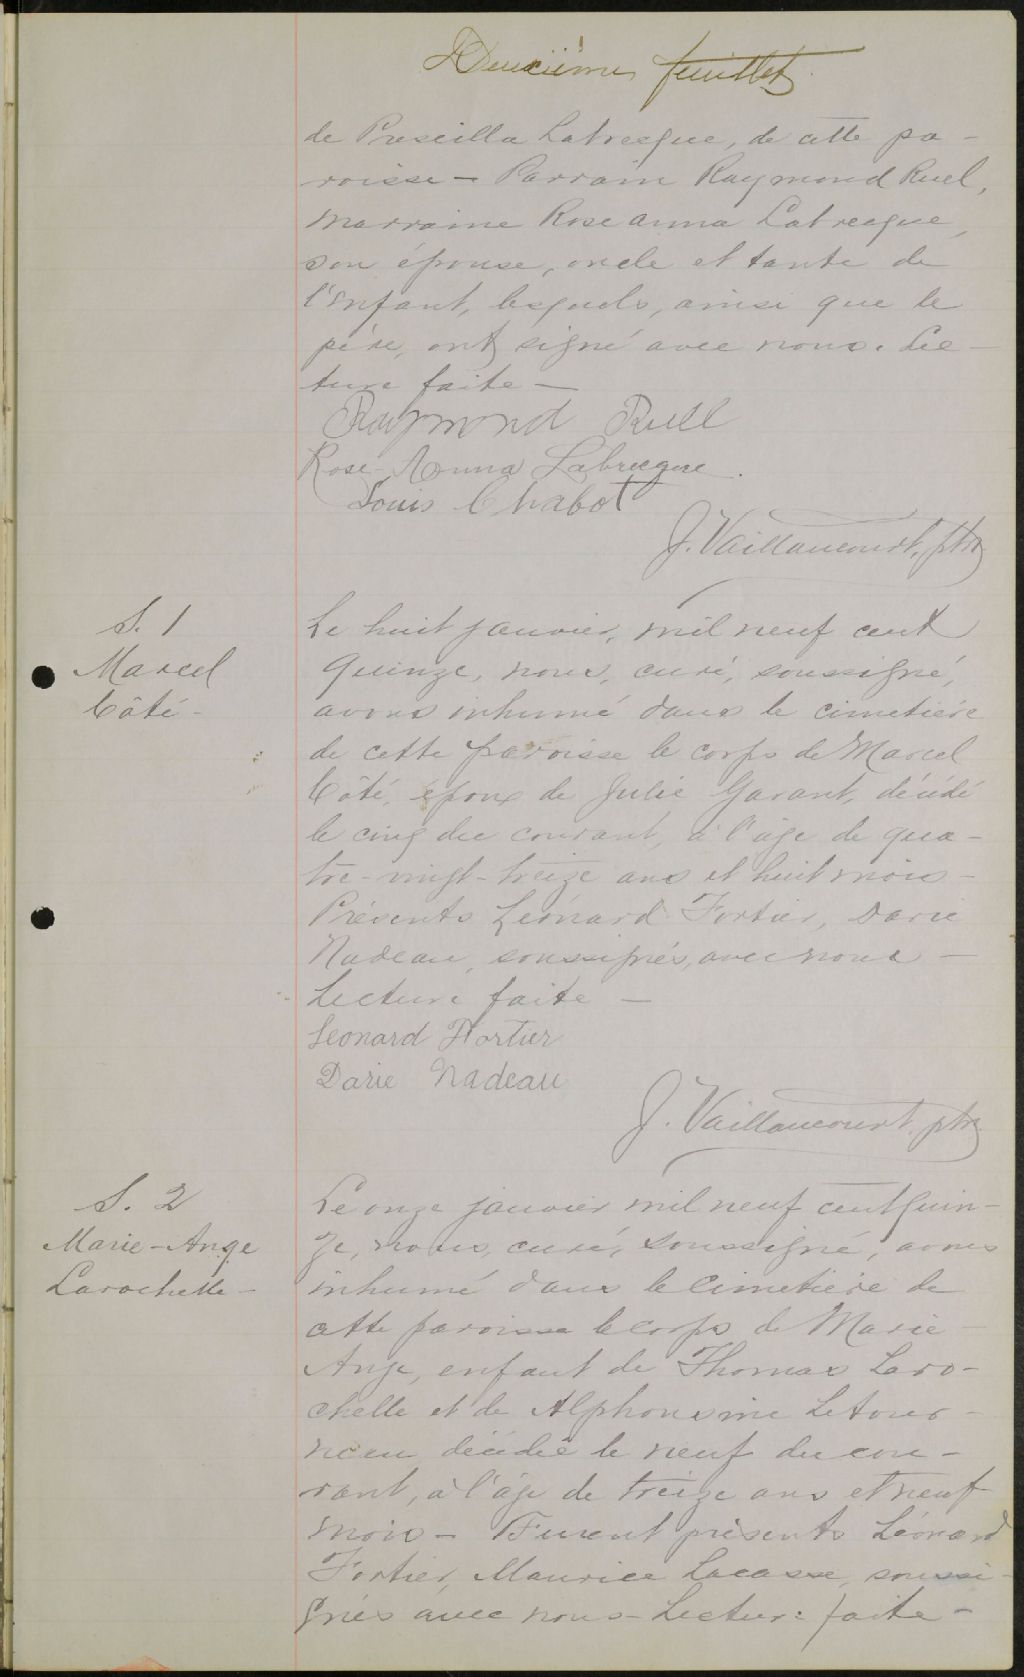 Deuxième feuillet
de Prescilla Labrecque, de cette pa-
roisse - Parrain Raymond Ruel,
marraine Rose anna Labrecque,
son épouse, oncle et tante de
l'enfant, lesquels, ainsi que le
père, ont signé avec nous. Lec-
ture faite -
Raymond Ruel
Rose-Anna Labrecque.
Louis Chabot
J. Vaillancourt, ptre
S. 1
Marcel
Côté -
Le huit janvier, mil neuf cent
quinze, nous, curé, soussigné,
avons inhumé dans le cimetière
de cette paroisse le corps de Marcel
Côté, époux de Julie Garant, décédé
le cinq du courant, à l'âge de qua-
tre-vingt-treize ans et huit mois -
Présents Léonard Fortier, Darie
Nadeau, soussignés, avec nous -
Lecture faite -
Leonard Fortier
Darie Nadeau
J. Vaillancourt, ptre
S. 2
Marie-Ange
Larochelle -
Le onze janvier mil neuf cent quin-
ze, nous, curé, soussigné, avons
inhumé dans le cimetière de
cette paroisse le corps de Marie-
Ange, enfant de Thomas Laro-
chelle et de Alphonsine Letour-
neau décédée le neuf du cou-
rant, à l'âge de treize ans et neuf
mois - Furent présents Léonard
Fortier, Maurice Lacasse, soussi-
gnés avec nous - Lecture faite -